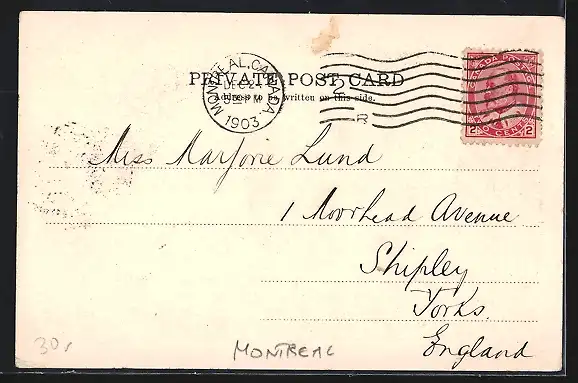 PRIVATE POST CARD
Address to be written on this side.
MONTREAL, CANADA.
DEC 24
1903
2
R
CANADA POSTAGE
2 TWO CENTS 2
Miss Marjorie Lund
1 Moorhead Avenue
Shipley
Yorks
England
30s
MONTREAL